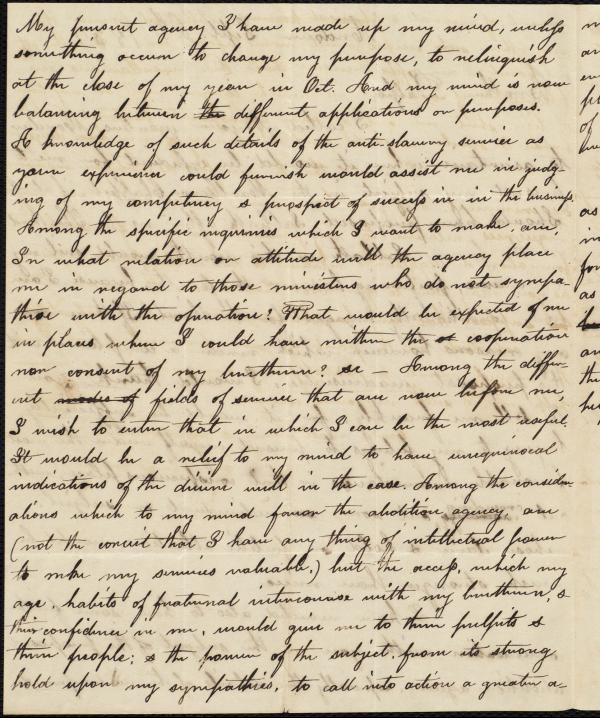 My present agency I have made up my mind, unless
something occurs to change my purpose, to relinquish
at the close of my year in Oct. And my mind is now
balancing between the different applications or purposes.
A knowledge of such details of the anti-slavery service as
your experience could furnish would assist me in judg-
ing of my competency & prospect of success in in the business.
Among the specific inquiries which I want to make, are,
In what relation or attitude will the agency place
me in regard to those ministers who do not sympa-
thise with the operation? What would be expected of me
in places where I could have neither the co cooperation
nor consent of my brethren? &c — Among the differ-
ent modes of fields of service that are now before me,
I wish to enter that in which I can be the most useful.
It would be a relief to my mind to have unequivocal
indications of the divine will in the case. Among the consider-
ations which to my mind favor the abolition agency, are
(not the conceit that I have any thing of intellectual power
to make my services valuable,) but the access, which my
age, habits of fraternal intercourse with my brethren, &
their confidence in me, would give me to their pulpits &
their people; & the power of the subject, from its strong
hold upon my sympathies, to call into action a greater a-